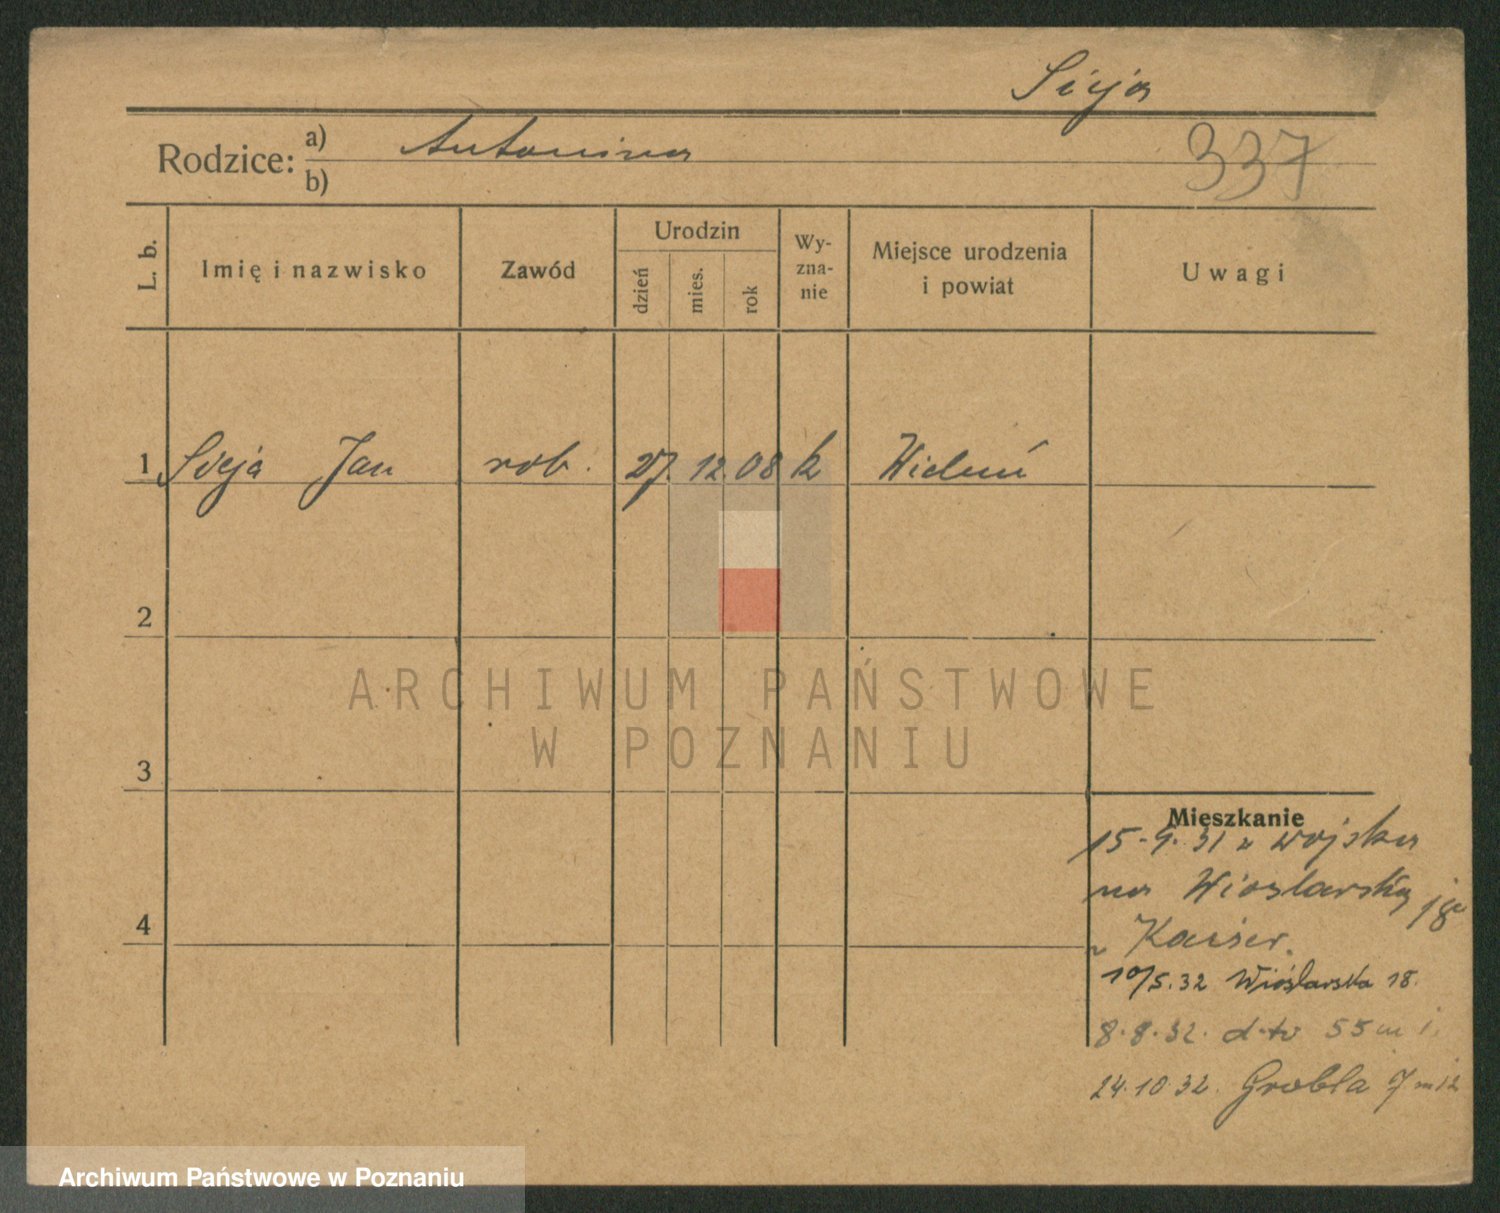 Sieja
Rodzice: a) Antonina
b)
337
L. b. Imię i nazwisko Zawód Urodzin dzień mies. rok Wy-zna-nie Miejsce urodzenia i powiat Uwagi
1 Sieja Jan rob. 27. 12. 08 k Wieluń
2
ARCHIWUM PAŃSTWOWE
W POZNANIU
3
4
Mieszkanie
15-9.31 z wojska
na Wioslarską 18
Kaiser.
10/5.32 Wioślarska 18.
8.8.32. d-to 55 m
24.10.32. Grobla 7 m 12
Archiwum Państwowe w Poznaniu